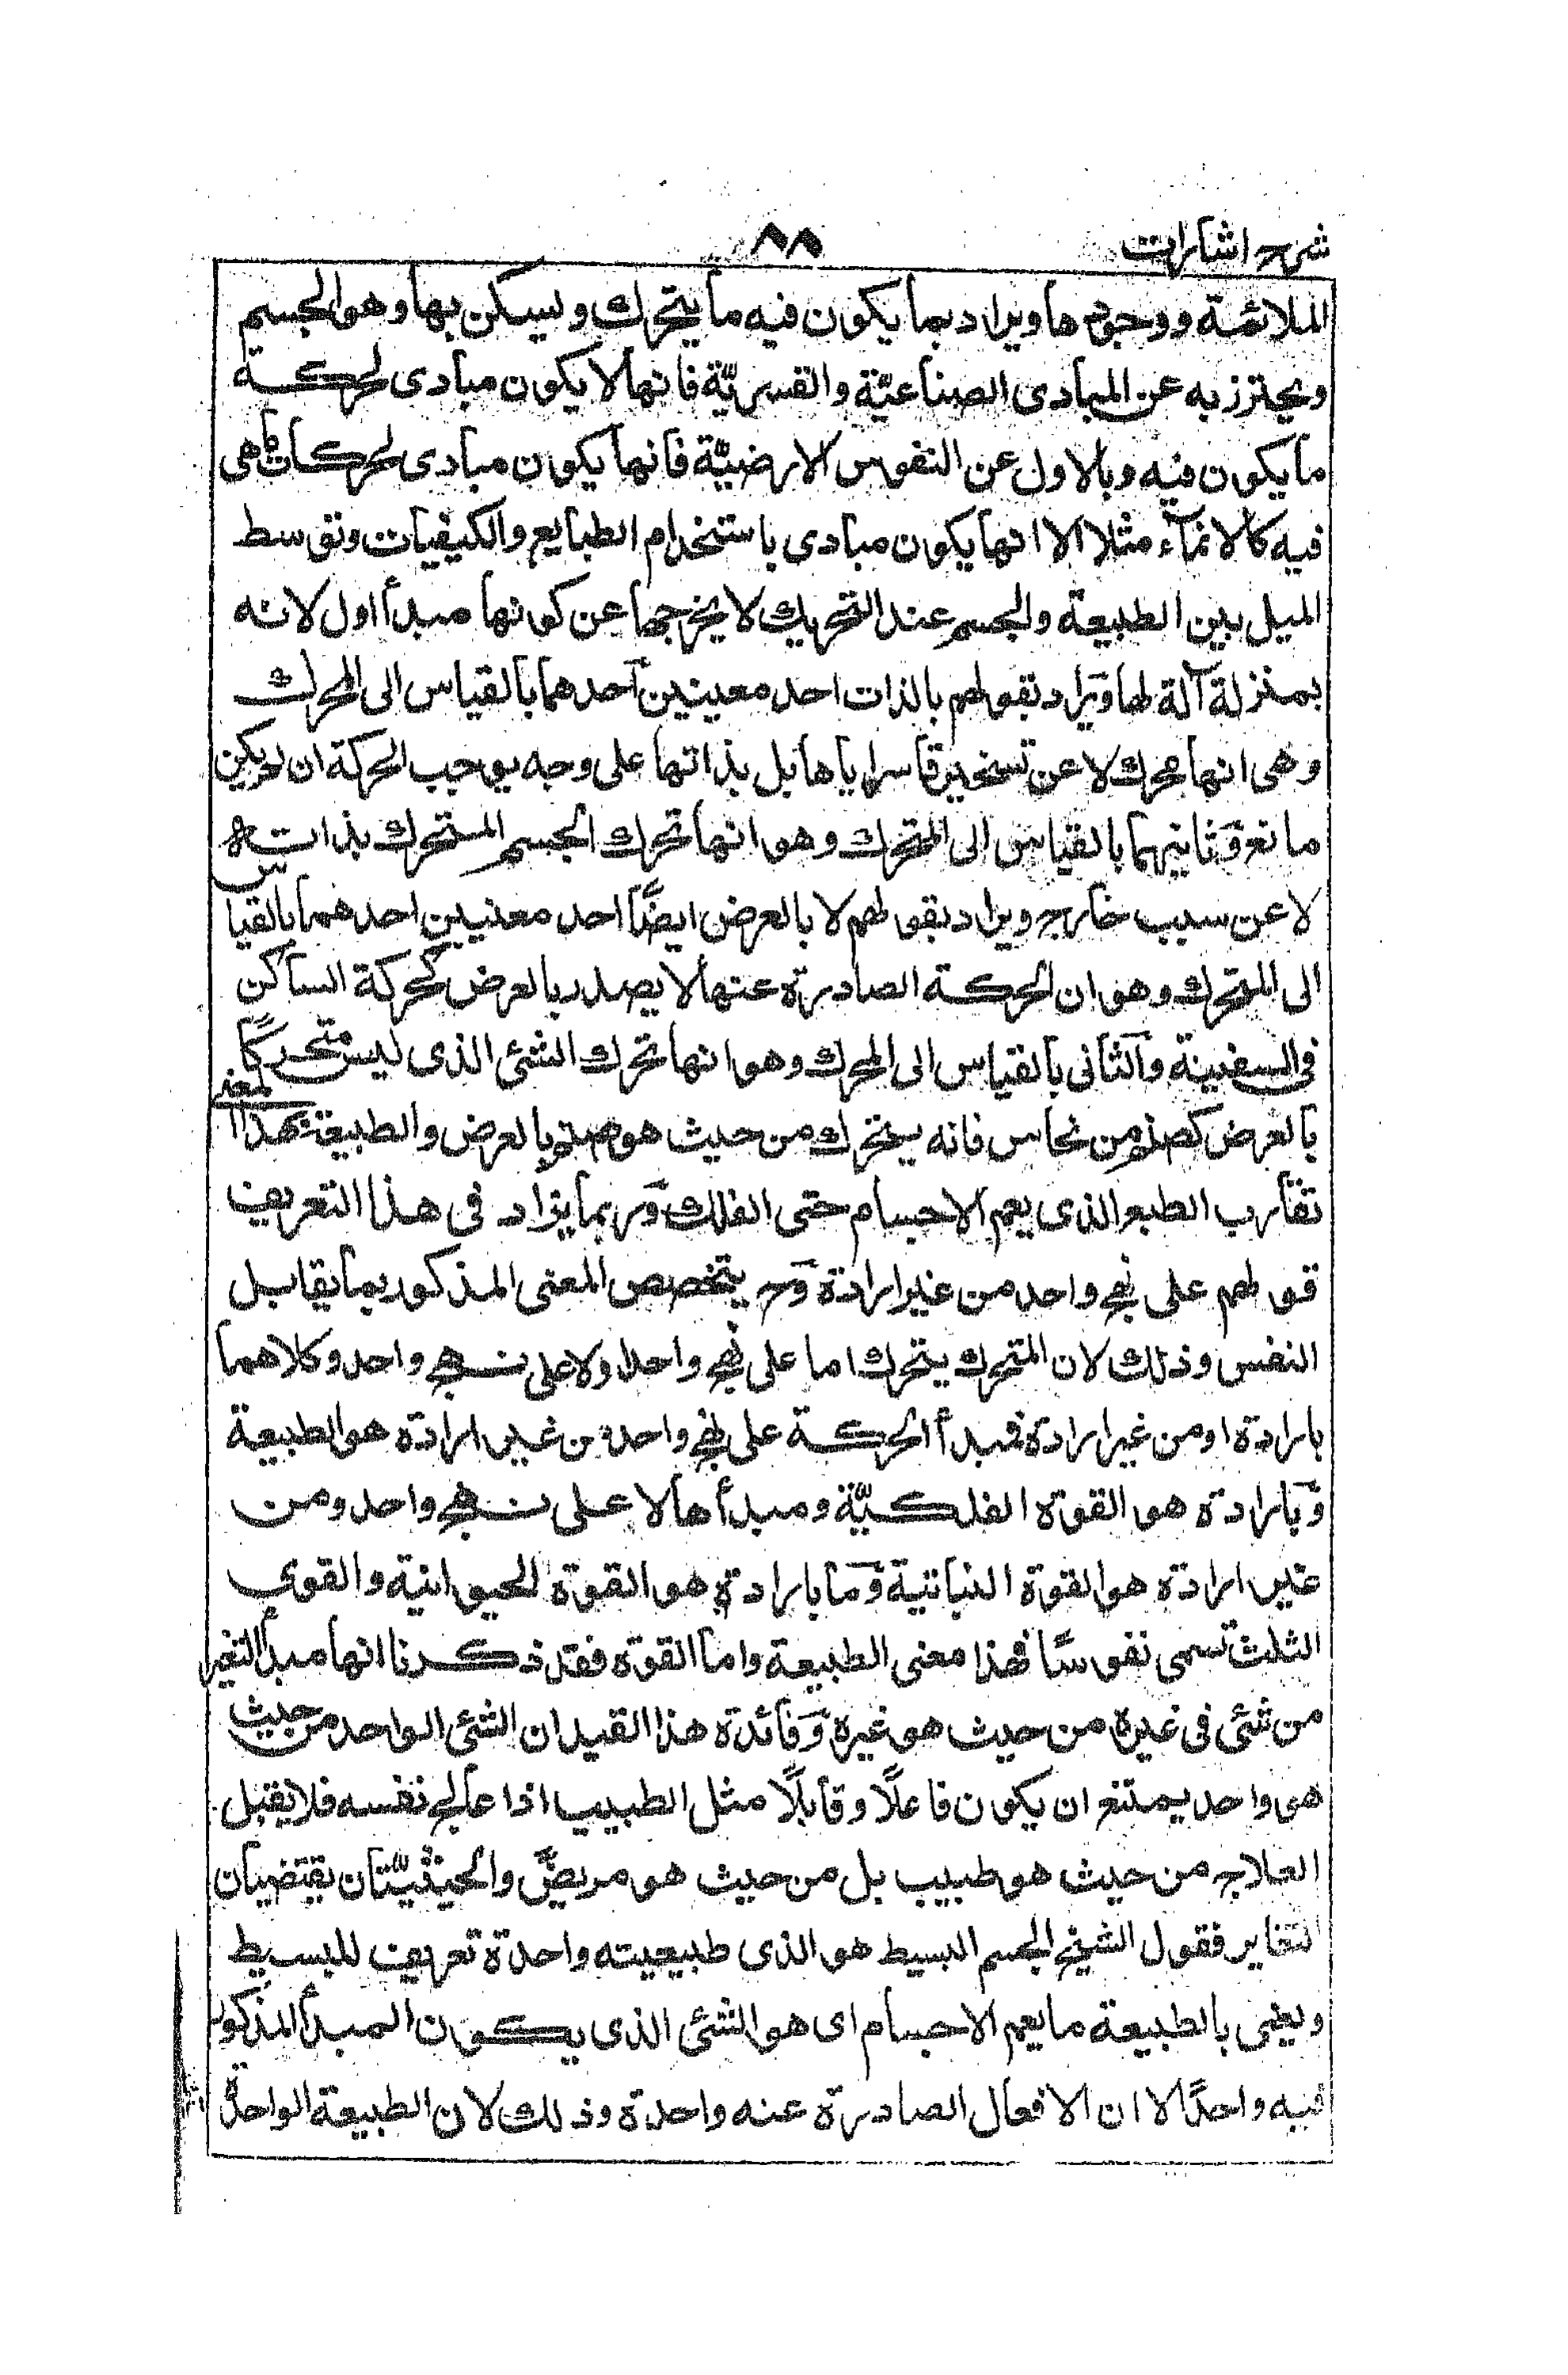 شرح اشارات
٨٨
الملائمة ووجودها ويراد بما يكون فيه ما يتحرك ويسكن بها وهو الجسم
ويحترز به عن المبادى الصناعيّة والقسريّة فانها لا يكون مبادى لحركة
ما يكون فيه وبالاول عن النفوس الارضيّة فانها يكون مبادى لحركات ما هى
فيه كالانماء مثلا الا انها يكون مبادى باستخدام الطبايع والكيفيات وتوسط
الميل بين الطبيعة والجسم عند التحريك لا يخرجها عن كونها مبدأ اول لانه
بمنزلة آلة لها ويراد بقولهم بالذات احد معنيين احدهما بالقياس الى المحرك
وهى انها تحرك لا عن تسخير قاسر اياها بل بذاتها على وجه يوجب الحركة ان لم يكن
مانع وثانيهما بالقياس الى المتحرك وهو انها تحرك الجسم المتحرك بذاته
لا عن سبب خارج ويراد بقولهم لا بالعرض ايضًا احد معنيين احدهما بالقياس
الى المتحرك وهو ان الحركة الصادرة عنها لا يصدر بالعرض كحركة الساكن
فى السفينة والثانى بالقياس الى المحرك وهو انها تحرك الشئ الذى ليس متحركًا
بالعرض كصنم من نحاس فانه يتحرك من حيث هو صنم بالعرض والطبيعة بهذا المعنى
تقارب الطبع الذى يعم الاجسام حتى الفلك وربما يزاد فى هذا التعريف
قولهم على نهج واحد من غير ارادة وح يتخصص المعنى المذكور بما يقابل
النفس وذلك لان المتحرك يتحرك اما على نهج واحد او لا على نهج واحد وكلاهما
بارادة او من غير ارادة فمبدأ الحركة على نهج واحد من غير ارادة هو الطبيعة
وبارادة هو القوة الفلكيّة ومبدأها لا على نهج واحد ومن
غير ارادة هو القوة النباتية وما بارادة هو القوة الحيوانية والقوى
الثلث تسمى نفوسًا فهذا معنى الطبيعة واما القوة فقد ذكرنا انها مبدأ التغير
من شئ فى غيره من حيث هو غيره وفائدة هذا القيد ان الشئ الواحد من حيث
هو واحد يمتنع ان يكون فاعلًا وقابلًا مثل الطبيب اذا عالج نفسه فلا يقبل
العلاج من حيث هو طبيب بل من حيث هو مريضٌ والحيثيّتان يقتضيان
التغاير فقول الشيخ الجسم البسيط هو الذى طبيعيته واحدة تعريف للبسيط
ويعنى بالطبيعة ما يعم الاجسام اى هو الشئ الذى يكون المبدأ المذكور
فيه واحدًا لا ان الافعال الصادرة عنه واحدة وذلك لان الطبيعة الواحدة